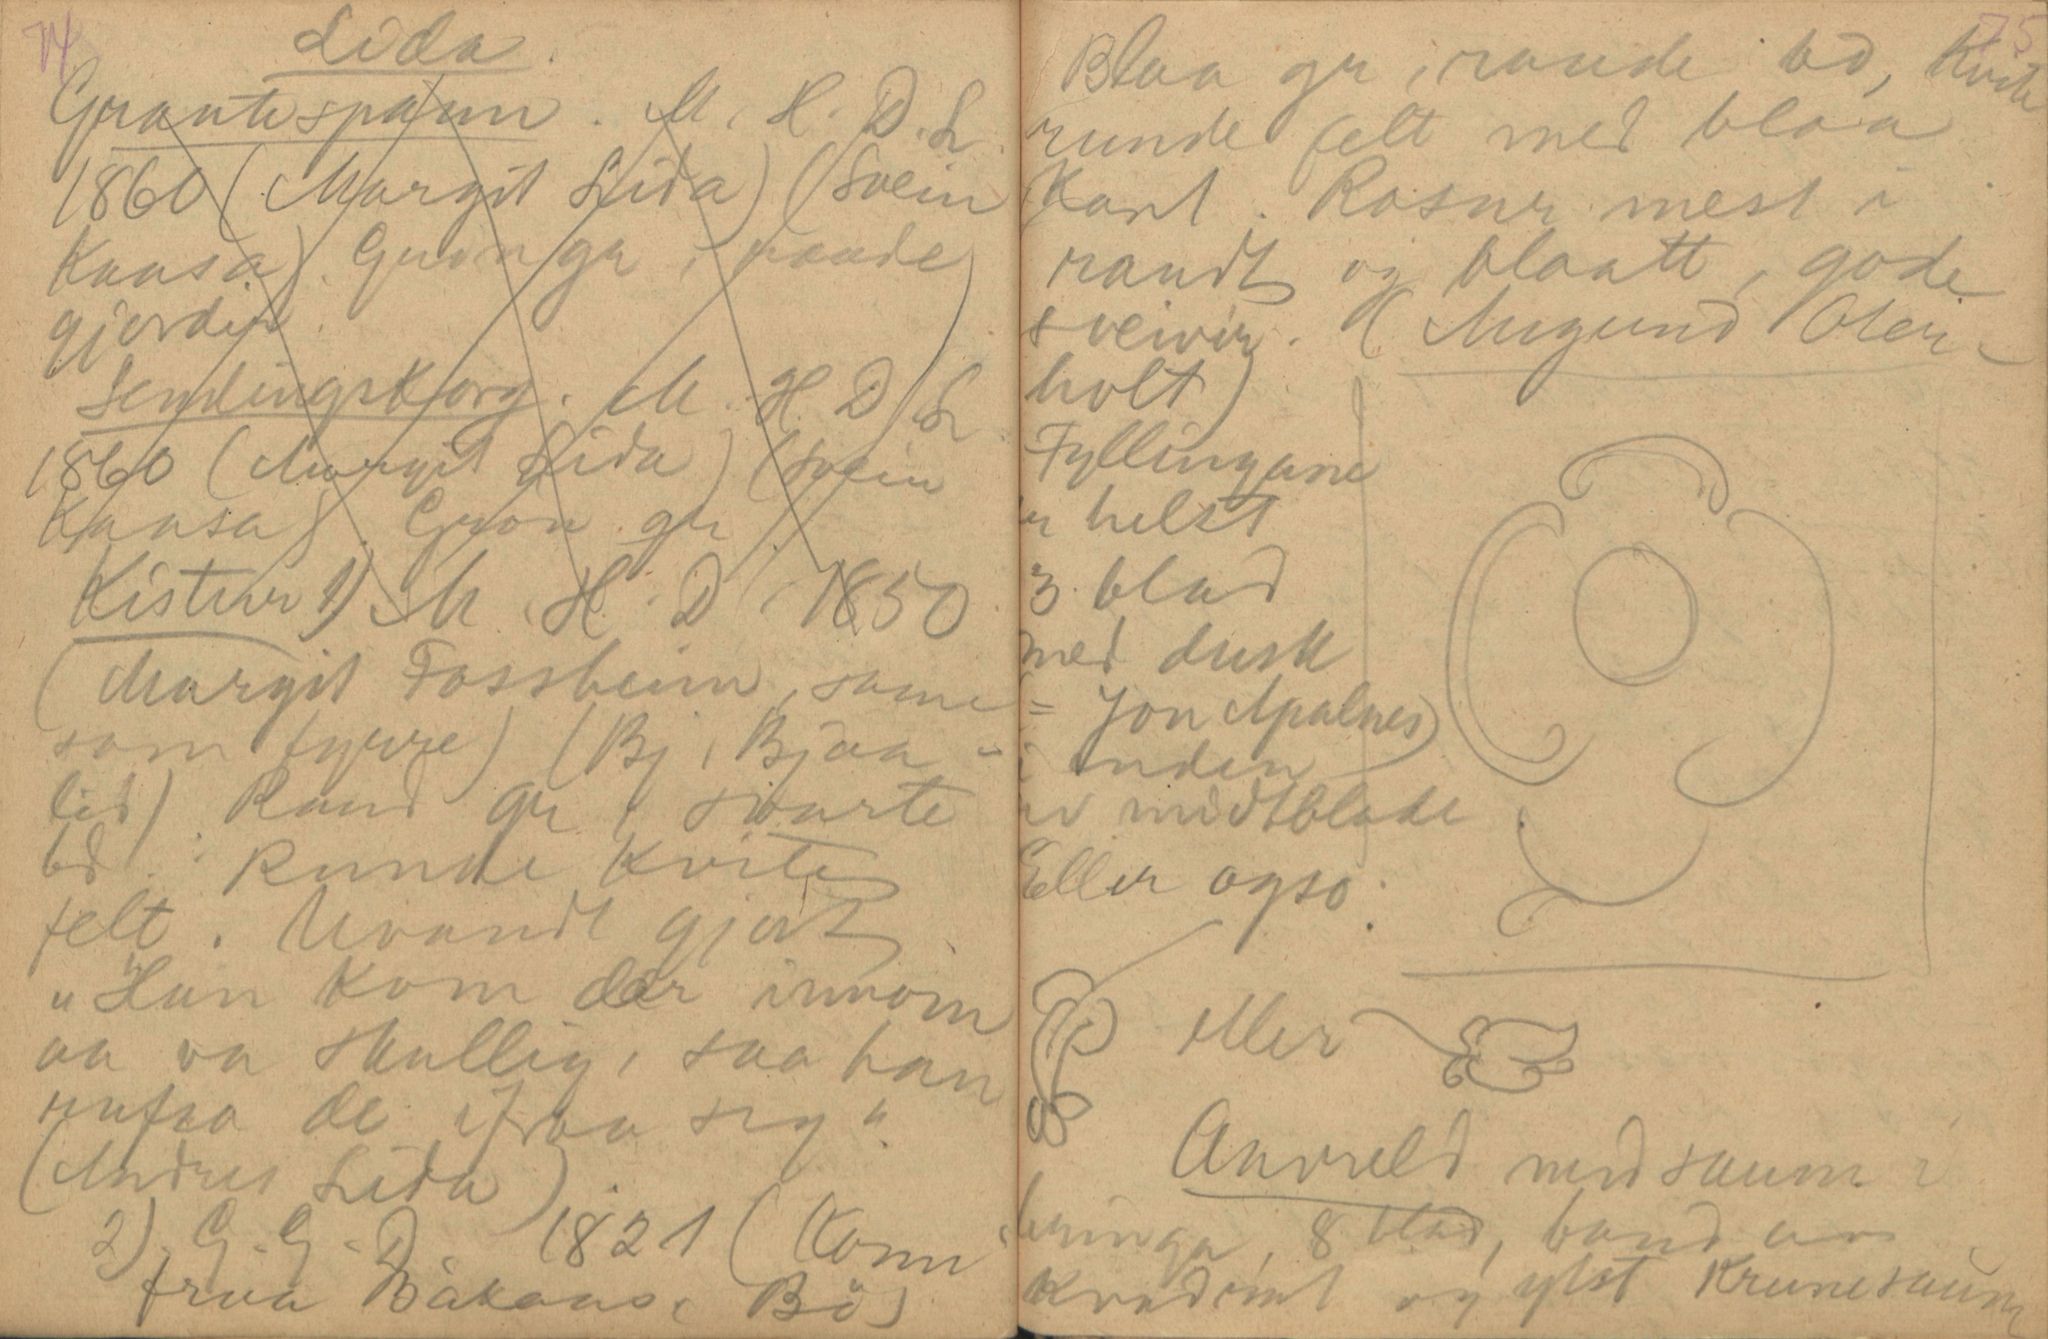 74
Lida.
Grautespann. M. H. D. L.
1860 (Margit Lida) (Svein
Kaasa). Grön gr, raude
gjordir.
Sendingskorg. M. H. D. L.
1860 (Margit Lida) (Svein
Kaasa). Grön gr.
Kistur 1) M. H. D. 1850
(Margit Fossheim, same
som fyrre) (Bj. Bjaa-
lid). Raud gr, svarte
bd. Runde kvite
felt. Uvandt gjort
"Han kom der innom
aa va skullig, saa han
rufsa de ifraa seg".
(Andres Lida).
2) G. G. D. 1821 (Kom
fraa Bakaas, Bö)
75
Blaa gr, raude bd, kvite
runde felt med blaa
kant. Rosur mest i
raudt og blaatt, gode
sveivir. (Augund Oter-
holt)
Fyllingane
er helst
3 blad
med dusk
(= Jon Apalnes)
i enden
av midtblade
Eller ogso:
eller
Anveld med saum i
bringa, 8 blad, band um
kvadrat og ylst Krunesaum